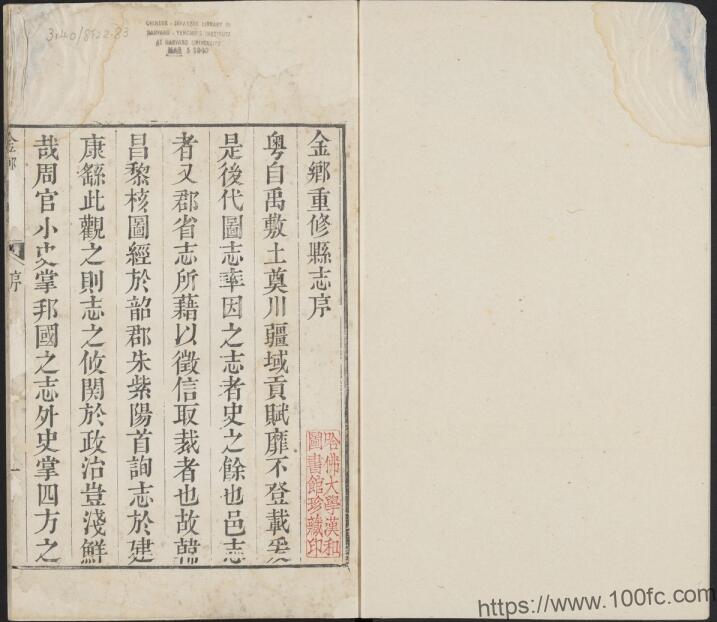 3140/8522.83
CHINESE - JAPANESE LIBRARY OF
HARVARD - YENCHING INSTITUTE
AT HARVARD UNIVERSITY
MAR 5 1940
金鄉重修縣志序
粵自禹敷土奠川疆域貢賦靡不登載爰
是後代圖志率因之志者史之餘也邑志
者又郡省志所藉以徵信取裁者也故韓
昌黎核圖經於韶郡朱紫陽首詢志於建
康繇此觀之則志之攸関於政治豈淺鮮
哉周官小史掌邦國之志外史掌四方之
金鄉
序
一
哈佛大學漢和
圖書館珍藏印
https://www.100fc.com